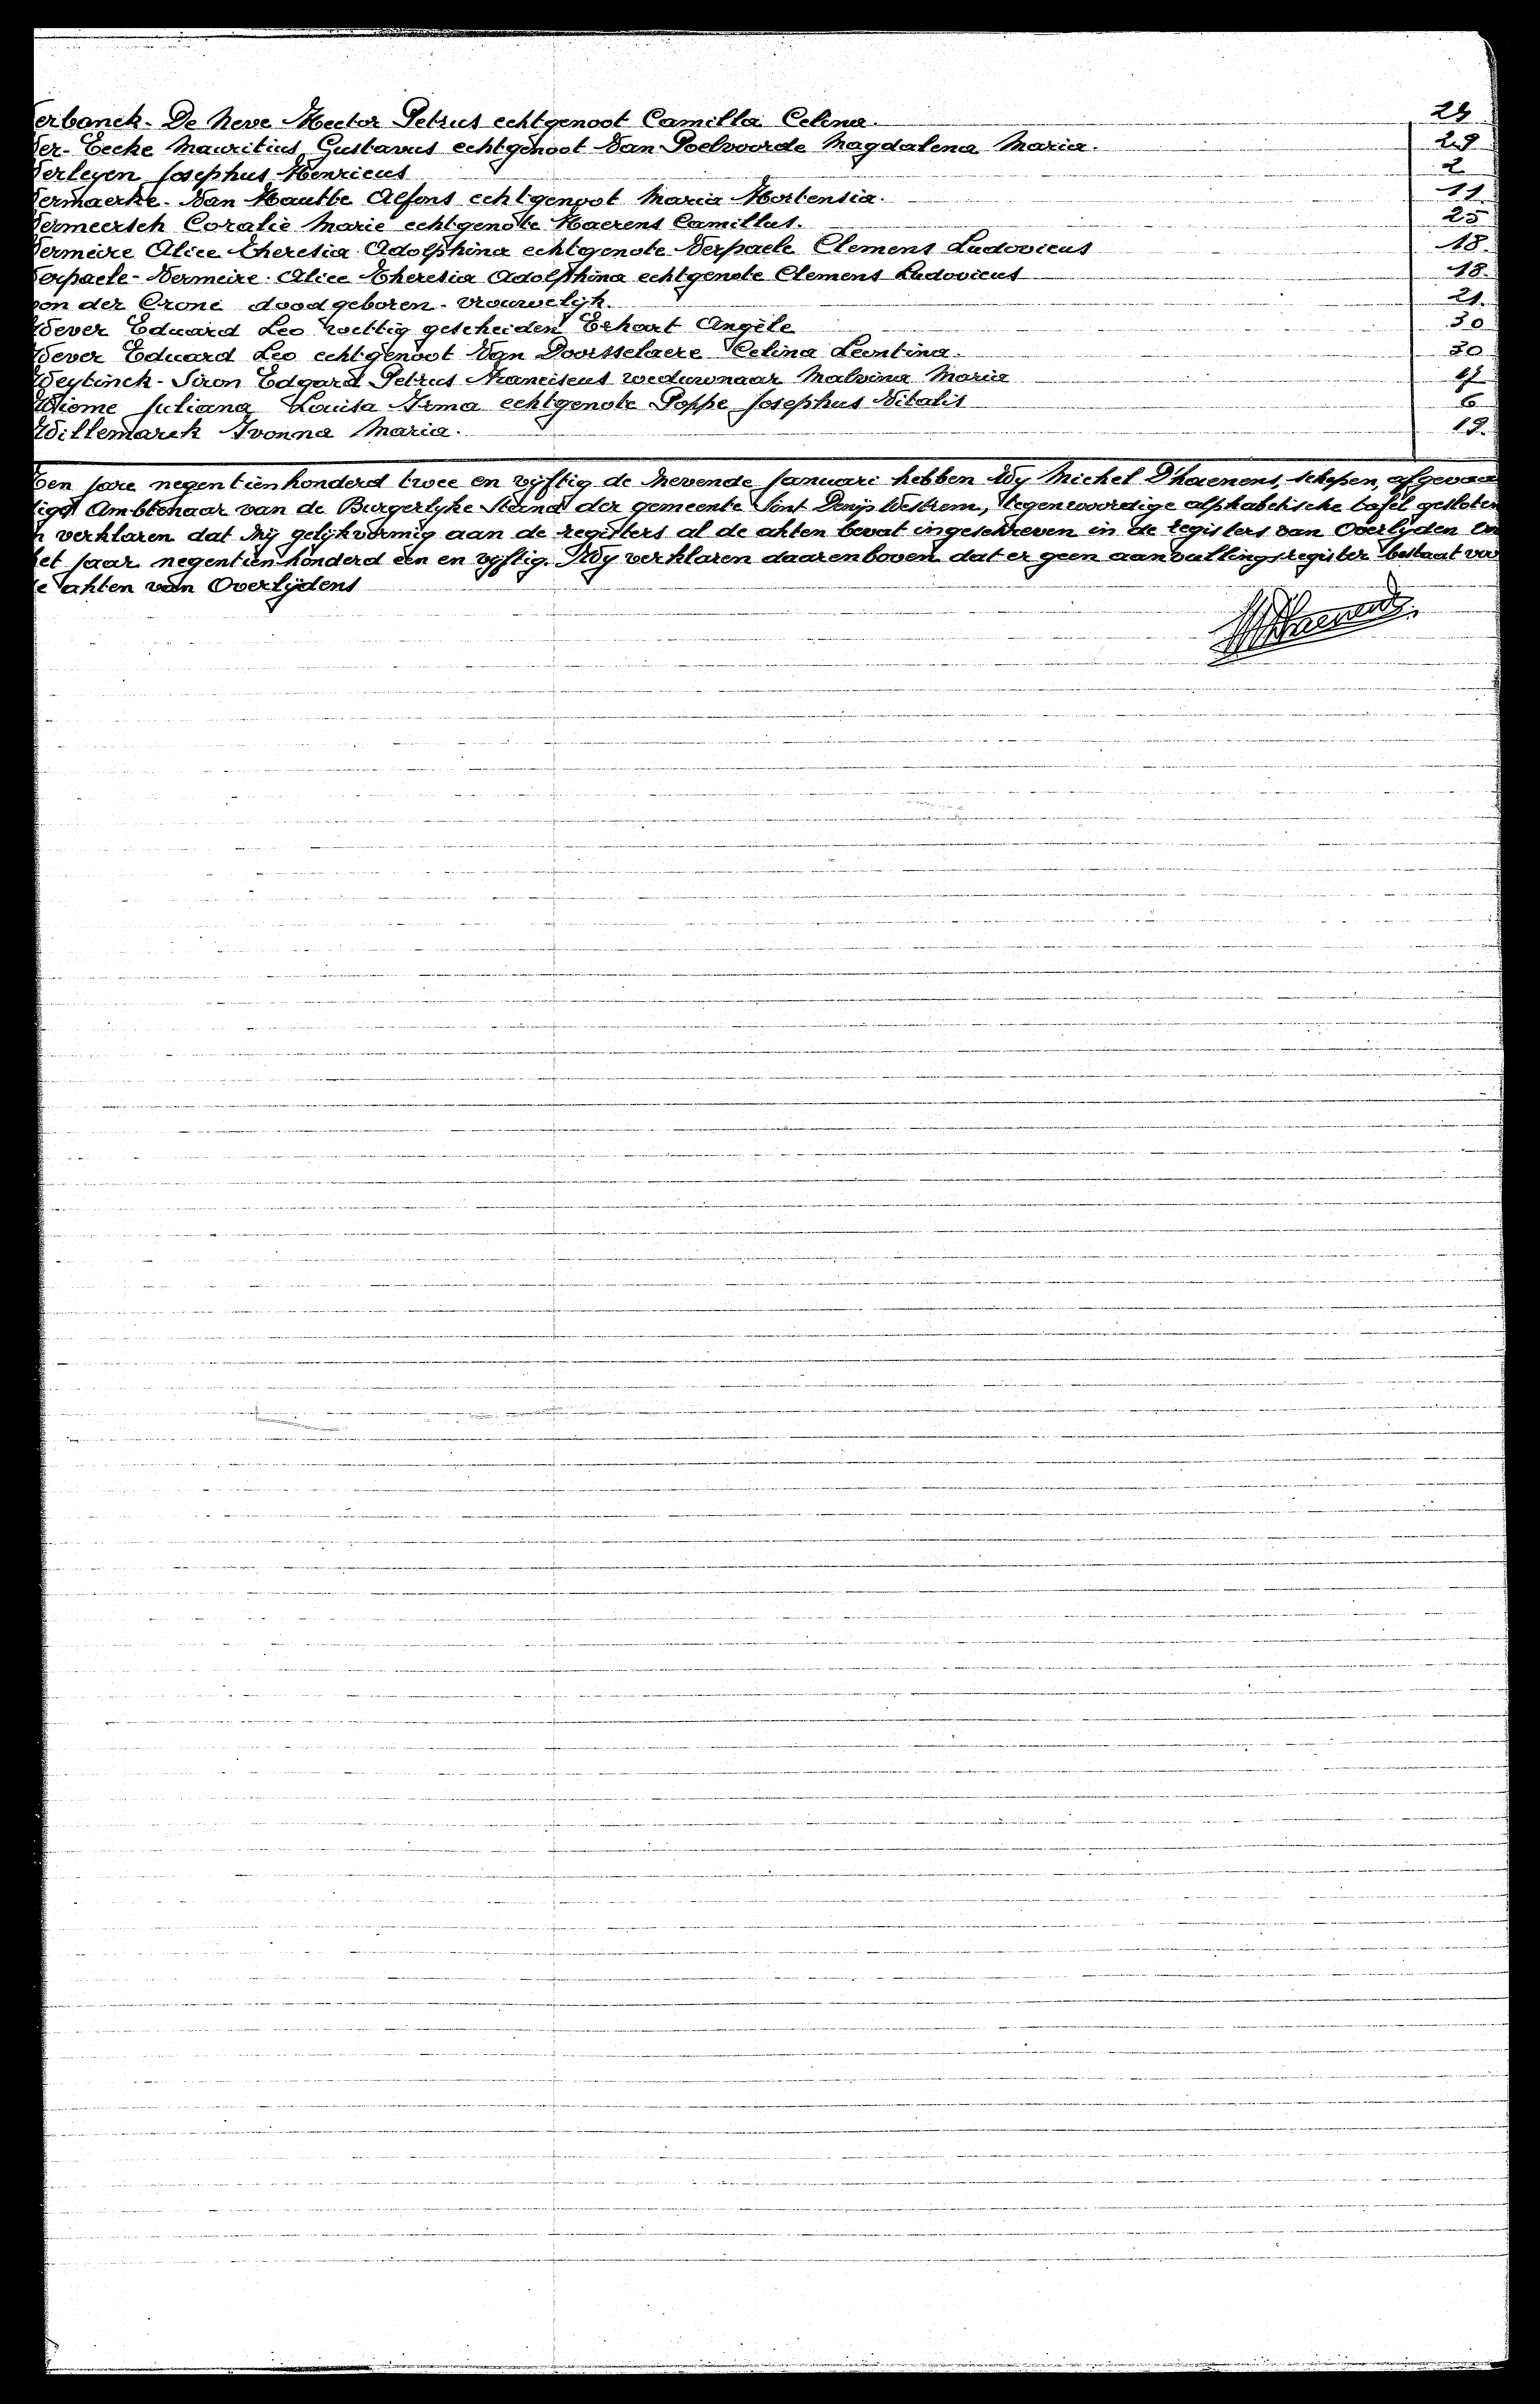 erbanck - De Neve Hector Petrus echtgenoot Camilla Celina. 24
Ver-Eecke Mauritius Gustavus echtgenoot Van Poelvoorde Magdalena Maria. 29
Verleyen Josephus Henricus 2
Vermaerke - Van Hautte Alfons echtgenoot Maria Hortensia. 11
Vermeersch Coralie Marie echtgenote Haerens Camillus. 25
Vermeire Alice Theresia Adolphina echtgenote Verpaele Clemens Ludovicus 18.
Verpaele - Vermeire Alice Theresia Adolphina echtgenote Clemens Ludovicus 18.
von der Crone doodgeboren - vrouwelijk. 21.
Wever Eduard Leo wettig gescheiden Erhart Angèle 30
Wever Eduard Leo echtgenoot Van Doorsselaere Celina Leontina. 30
Weytinck - Siron Edgard Petrus Franciscus weduwnaar Malvina Maria 17
Wieme Juliana Louisa Irma echtgenote Poppe Josephus Vitalis 6
Willemarck Ivonna Maria. 19.
Ten jare negentienhonderd twee en vijftig de zevende Januari hebben Wij Michel D'haenens, schepen, afgevaar
igd Ambtenaar van de Burgerlyke Stand der gemeente Sint Denijs Westrem, tegenwoordige alphabetische tafel gesloten
n verklaren dat zij gelijkvormig aan de registers al de akten bevat ingeschreven in de registers van Overlijden in
et jaar negentienhonderd één en vijftig. Wij verklaren daarenboven dat er geen aanvullingsregister bestaat voo
e akten van Overlijdens